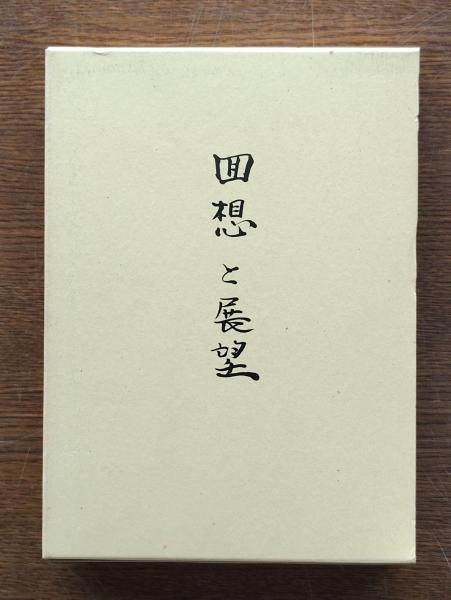 回想と展望